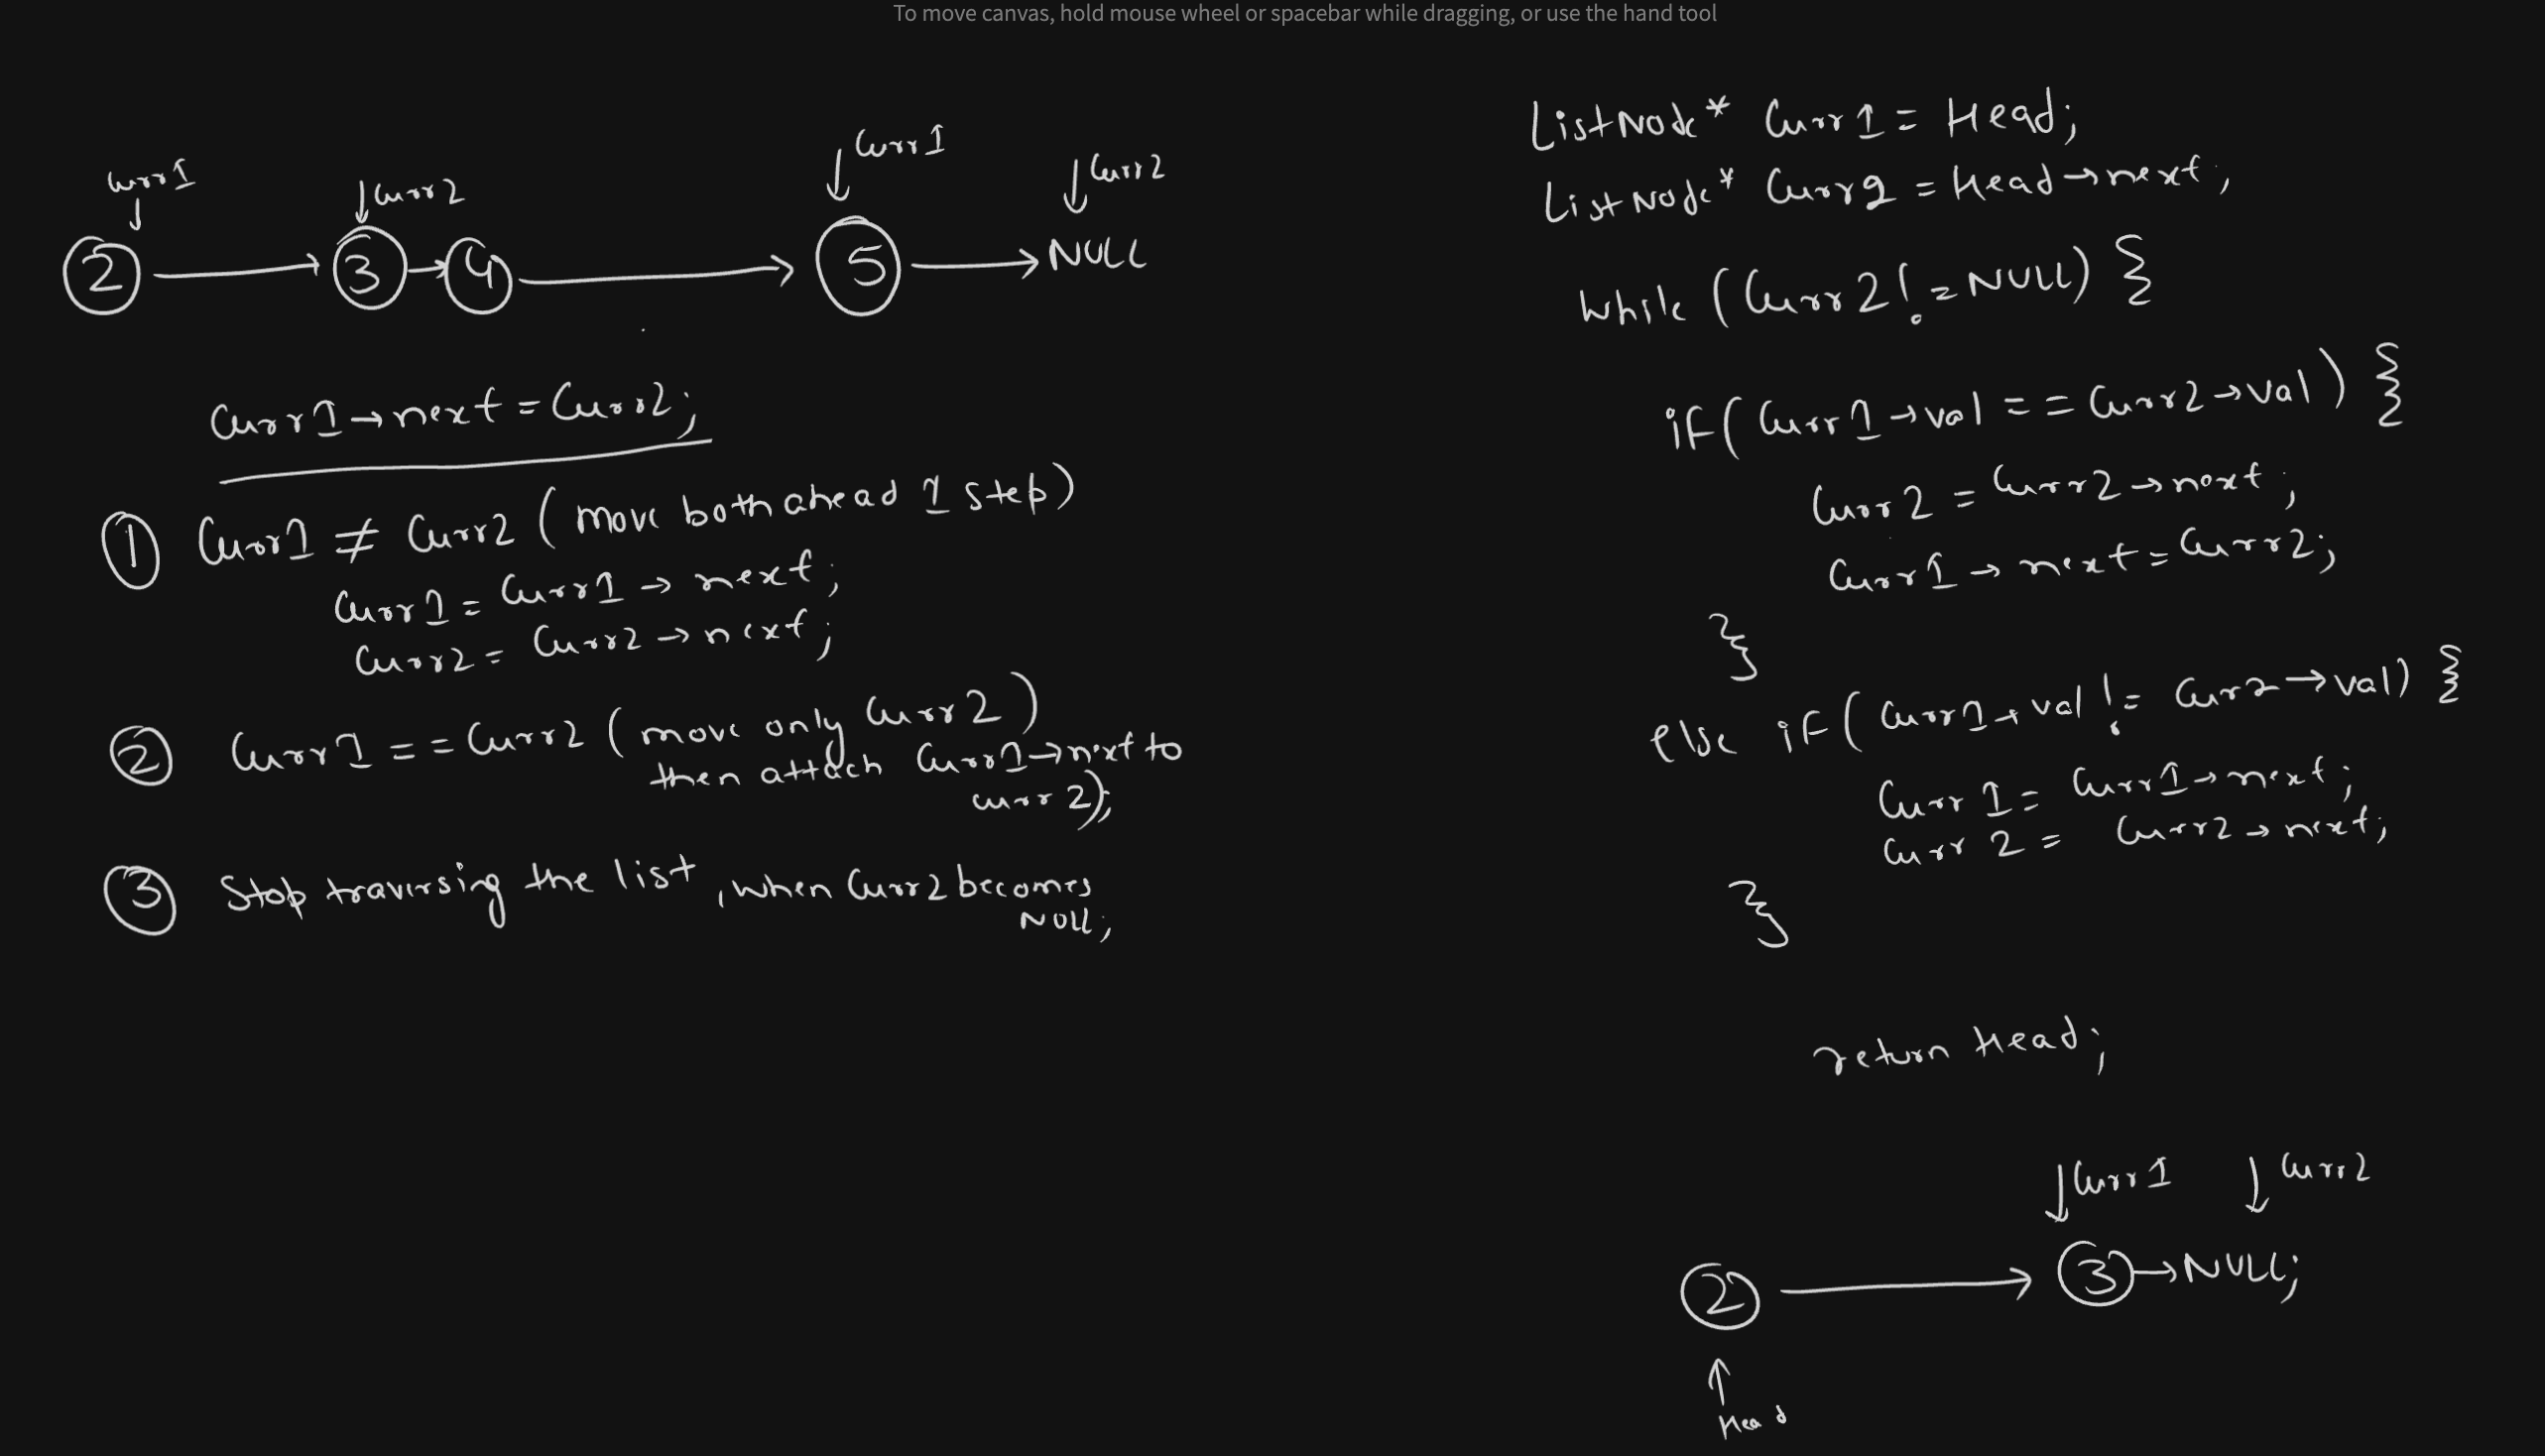 To move canvas, hold mouse wheel or spacebar while dragging, or use the hand tool
Curr1
↓Curr2
↓Curr1
↓Curr2
2 → 3 → 4 → 5 → NULL
Curr1→next = Curr2;
① Curr1 ≠ Curr2 (move both ahead 1 step)
Curr1 = Curr1 → next;
Curr2 = Curr2 → next;
② Curr1 == Curr2 (move only Curr2
then attach Curr1→next to
curr 2);
③ Stop traversing the list, when Curr2 becomes
NULL;
ListNode* Curr1 = Head;
ListNode* Curr2 = Head→next;
while (Curr2 != NULL) {
if(Curr1→val == Curr2→val) {
Curr2 = Curr2→next;
Curr1→next = Curr2;
}
else if(Curr1→val != Curr2→val) {
Curr1 = Curr1→next;
Curr2 = Curr2→next;
}
return Head;
↓Curr1 ↓Curr2
2 → 3 → NULL;
↑
Head